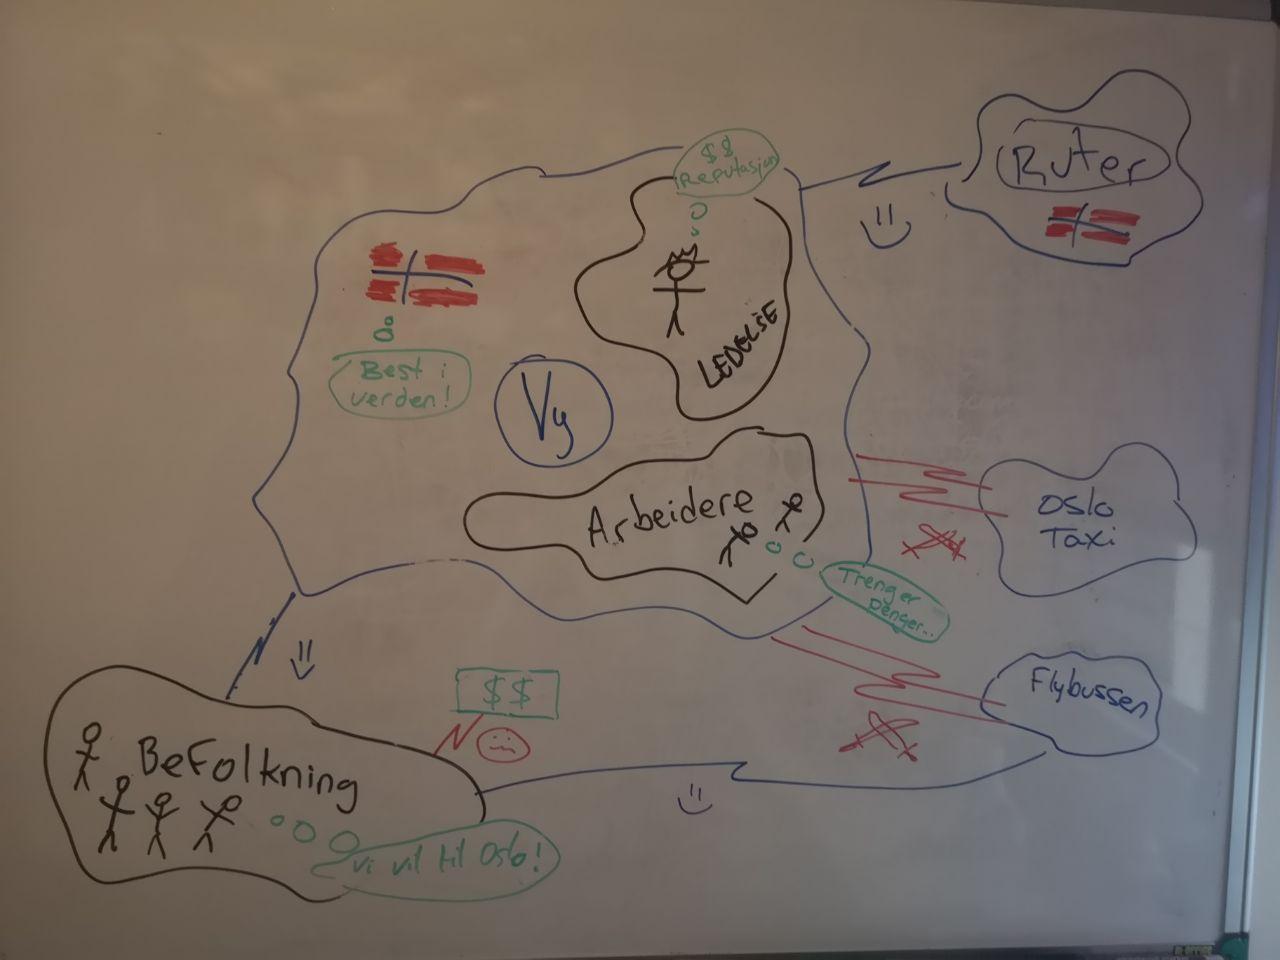 $$
Reputasjon
Ruter
LEDELSE
Best i
verden!
Vy
Arbeidere
Oslo
Taxi
Trenger
penger...
Flybussen
$$
Befolkning
Vi vil til Oslo!